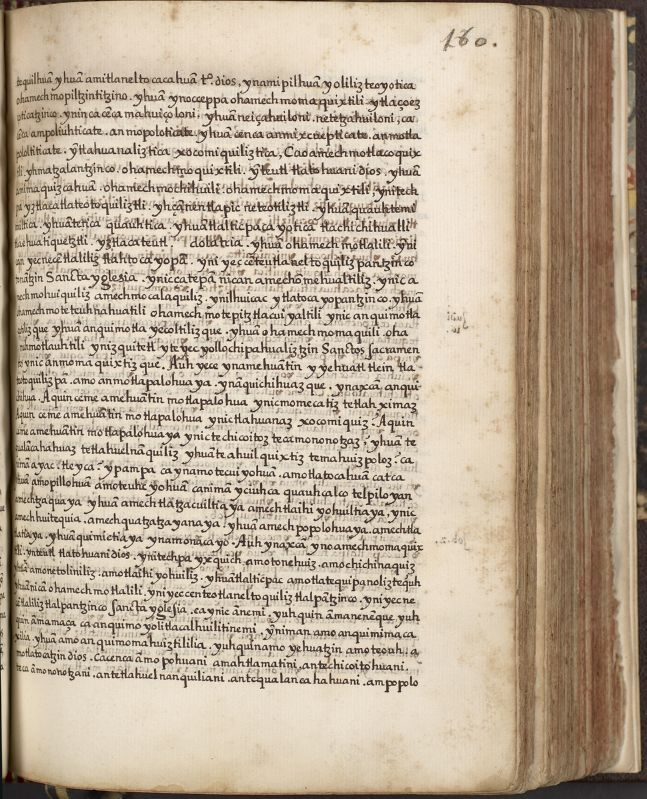 180.
tequilhuã yhuã amitlanelto cacahuã tº. dios, ynami pilhuã yoliliz teoyotica
ohamechmopiltzintitzino. yhuã ynocceppa ohamechmomaquixtili ytlaçoez
coticatzinco. ynin ca cẽca mahuiçoloni. yhuã neiçahuiloni. netetzahuiloni, ca
ca ampoliuhticate. anmopoloticate. yhuã cenca anmixcuepticate. anmotla
pololtiticate. ỹtlahuanaliztica xocomiquiliztica, Ca o amechmotlaco quix
tili. yhmatzalantzinco. ohamechmoquixtili. ỹteutl tlatohuani dios. yhuã
anima quizcahuã. ohamechmochihuili. ohamechmomaquixtili, ynitech
pa yztlacatlateotoquiliztli. yhçãnentlapic neteotiliztli. yhuã quauhtemi
miltica. yhuã tetica quauhtica. yhuã tlalticpac ayotica tlachichihualli
tlaehuatiquetztli. yztlacateutl. dolatria. yhuã ohamechmotlalili. yni
can yecnecẽtlaliliz tlatitocayopã. yni yeccẽteutlaneltoquilizpantzinco
tonãtzin Sancta yglesia. yniccatepã nican amechõmehualtiliz. ynic a
mechmohuiquiliz amechmocalaquiliz. ynilhuicac ytlatocayopantzinco. yhuã
ohamechmoteteuhnahuatili ohamechmotepitztlacuiyaltili ynic anquimotla
coliz que yhuã anquimotlayecoltiliz que. yhuã ohamechmomaquili. oha
mamotlauhtili yniz quitetl yteyecyollochipahualiztzin Sanctos sacramen
tos ynic anmomaquixtiz que. Auh yece ynamehuãtin yyehuatl tlein tla
noto quilizpã. amo anmotlapalohuaya. ynãquichihuaz que. ynaxcã anqui
chihua. Aquin ceme amehuãtin motlapalohua ynicmomecatiz tetlahximaz
Aquin ceme amehuãtin motlapalohua ynictlahuanaz xocomiquiz? Aquin
ceme amehuãtin motlapalohuaya ynictechicoitoz teca mononotzaz, yhuã te
qualãcahuaz tetlahuelnãquiliz yhuã teahuilquixtiz temahuizpoloz? ca
nimã ayac. tle yca? ypampa caynamotecuiyohuã. amotlatocahuã catca
yhuã amopillohuã amoteuhcyohuã canimã yciuhca quauhcalco telpiloyan
amechtzaquaya yhuã amechtlatzacuiltiaya amechtlaihiyohuiltiaya, ynic
amechhuitequia. amechquatzatzayanaya. yhuã amechpopolohuaya. amechtla
tlatiaya. yhuã quimictiaya ynamonãcayo. Auh ynaxcã, ynoamechmomaquix
tili. ynteutl tlatohuani dios. ynitechpa yxquich amotonehuiz. amochichinaquiz
yhuã amonetoliniliz. amotlaihiyohuiliz. yhuã tlalticpac amotlatequipanoliztequh
yhuã nicã ohamechmotlalili. yni yeccenteotlaneltoquiliz tlalpãtzinco. yni yecne
cẽtlaliliz tlalpantzinco sancta yglesia. ca ynic ãnemi. yuh quin ãmanenẽque, yuh
quin ãmamaça ca anquimoyolitlacalhuilitinemi. yniman amo anquimimaca
xilia. yhuã amo anquimomahuiztililia. yuhquinamo yehuatzin amoteouh. a
motlatocatzin dios. ca cenca ãmopohuani amahtlamatini. antechicoitohuani.
teca ãmononotzani. antetlahuelnanquiliani. antequalancahahuani. ampopolo